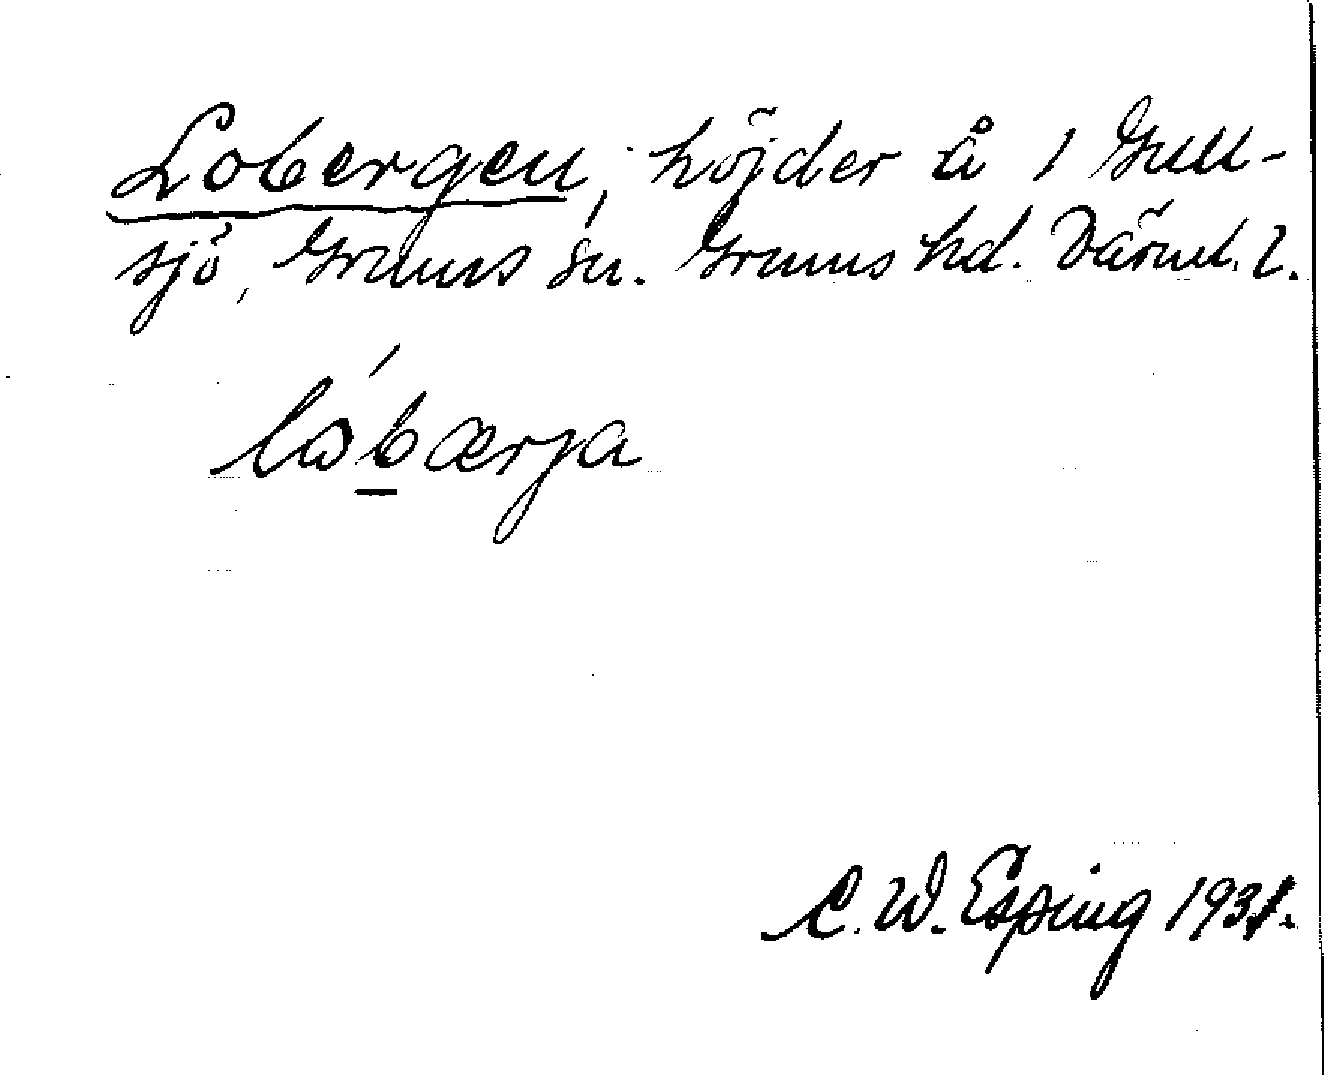 Lobergen, höjder å 1 Gull-
sjö, Grums sn. Grums hd. Värml. l.
lo´bærja
C. W. Esping 1931.